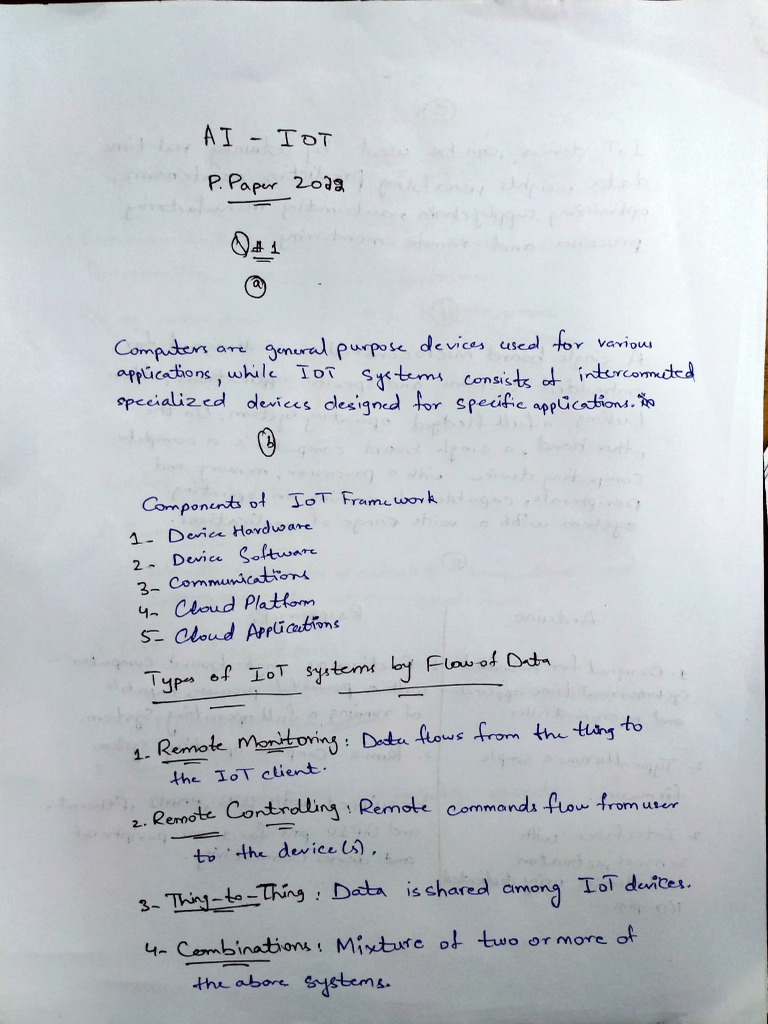 AI - IOT
P. Paper 2022
Q # 1
(a)
Computers are general purpose devices used for various
applications, while IOT systems consists of interconnected
specialized devices designed for specific applications.
(b)
Components of IOT Framework
1- Device Hardware
2- Device Software
3- Communications
4- Cloud Platform
5- Cloud Applications
Types of IOT systems by Flow of Data
1. Remote Monitoring: Data flows from the thing to
the IOT client.
2. Remote Controlling: Remote commands flow from user
to the device(s).
3- Thing-to-Thing: Data is shared among IOT devices.
4- Combinations: Mixture of two or more of
the above systems.